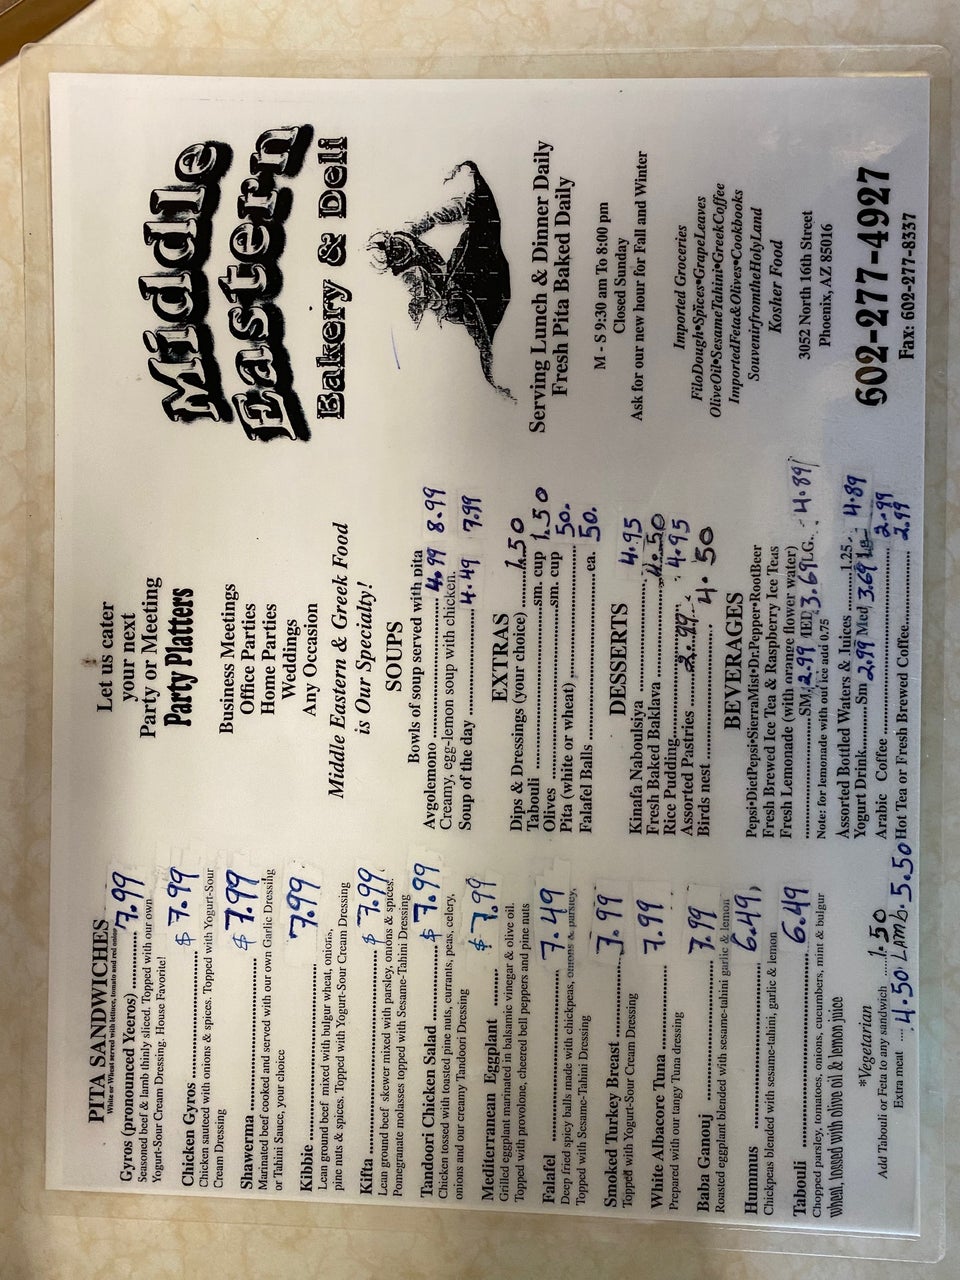 PITA SANDWICHES
White or Wheat served with lettuce, tomato and red onion
Gyros (pronounced Yeeros) .......... 7.99
Seasoned beef & lamb thinly sliced. Topped with our own
Yogurt-Sour Cream Dressing. House Favorite!
Chicken Gyros .......... $ 7.99
Chicken sauteed with onions & spices. Topped with Yogurt-Sour
Cream Dressing
Shawerma .......... $ 7.99
Marinated beef cooked and served with our own Garlic Dressing
or Tahini Sauce, your choice
Kibbie .......... 7.99
Lean ground beef mixed with bulgur wheat, onions,
pine nuts & spices. Topped with Yogurt-Sour Cream Dressing
Kifta .......... $ 7.99
Lean ground beef skewer mixed with parsley, onions & spices.
Pomegranate molasses topped with Sesame-Tahini Dressing
Tandoori Chicken Salad .......... $ 7.99
Chicken tossed with toasted pine nuts, currants, peas, celery,
onions and our creamy Tandoori Dressing
Mediterranean Eggplant .......... $ 7.99
Grilled eggplant marinated in balsamic vinegar & olive oil.
Topped with provolone, cheered bell peppers and pine nuts
Falafel .......... 7.49
Deep fried spicy balls made with chickpeas, onions & parsley,
Topped with Sesame-Tahini Dressing
Smoked Turkey Breast .......... 7.99
Topped with Yogurt-Sour Cream Dressing
White Albacore Tuna .......... 7.99
Prepared with our tangy Tuna dressing
Baba Ganouj .......... 7.99
Roasted eggplant blended with sesame-tahini garlic & lemon
Hummus .......... 6.49
Chickpeas blended with sesame-tahini, garlic & lemon
Tabouli .......... 6.49
Chopped parsley, tomatoes, onions, cucumbers, mint & bulgur
wheat, tossed with olive oil & lemon juice
*Vegetarian
Add Tabouli or Feta to any sandwich ...... 1.50
Extra meat .... 4.50 LAMB. 5.50
Let us cater
your next
Party or Meeting
Party Platters
Business Meetings
Office Parties
Home Parties
Weddings
Any Occasion
Middle Eastern & Greek Food
is Our Specialty!
SOUPS
Bowls of soup served with pita
Avgolemono .......... 4.99 8.99
Creamy, egg-lemon soup with chicken.
Soup of the day .......... 4.49 7.99
EXTRAS
Dips & Dressings (your choice) ........ 1.50
Tabouli .......... sm. cup 1.50
Olives .......... sm. cup
Pita (white or wheat) .......... 50.
Falafel Balls .......... ea. 50.
DESSERTS
Kinafa Naboulsiya .......... 4.95
Fresh Baked Baklava .......... 4.50
Rice Pudding .......... 4.95
Assorted Pastries ........ 2.99
Birds nest .......... 4.50
BEVERAGES
Pepsi•DietPepsi•SierraMist•Dr.Pepper•RootBeer
Fresh Brewed Ice Tea & Raspberry Ice Teas
Fresh Lemonade (with orange flower water)
.......... SM. 2.99 MED 3.69 LG. 4.89
Note: for lemonade with out ice add 0.75
Assorted Bottled Waters & Juices .......... 1.25
Yogurt Drink .......... Sm 2.99 Med 3.69 Lg 4.89
Arabic Coffee .......... 2.99
Hot Tea or Fresh Brewed Coffee .......... 2.99
Middle
Eastern
Bakery & Deli
Serving Lunch & Dinner Daily
Fresh Pita Baked Daily
M - S 9:30 am To 8:00 pm
Closed Sunday
Ask for our new hour for Fall and Winter
Imported Groceries
FiloDough•Spices•GrapeLeaves
OliveOil•SesameTahini•GreekCoffee
ImportedFeta&Olives•Cookbooks
SouvenirfromtheHolyLand
Kosher Food
3052 North 16th Street
Phoenix, AZ 85016
602-277-4927
Fax: 602-277-8337